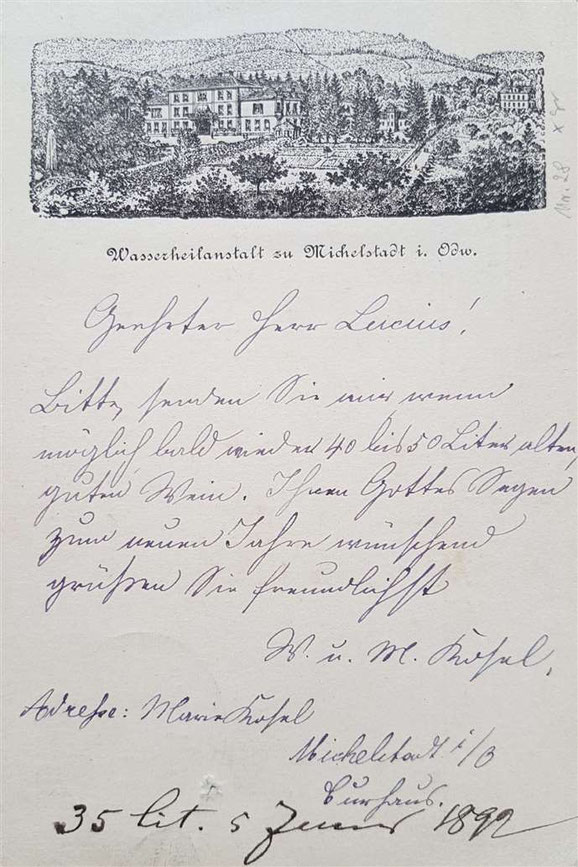 Wasserheilanstalt zu Michelstadt i. Odw.
Geehrter Herr Lucius!
Bitte, senden Sie mir wenn
möglich bald wieder 40 bis 50 Liter alten,
guten Wein. Ihnen Gottes Segen
zum neuen Jahre wünschend
grüßen Sie freundlichst
W. u. M. Kosel,
Adresse: Marie Kosel
Michelstadt i/O
Curhaus.
35 lit. 5 1892
Nr. 28